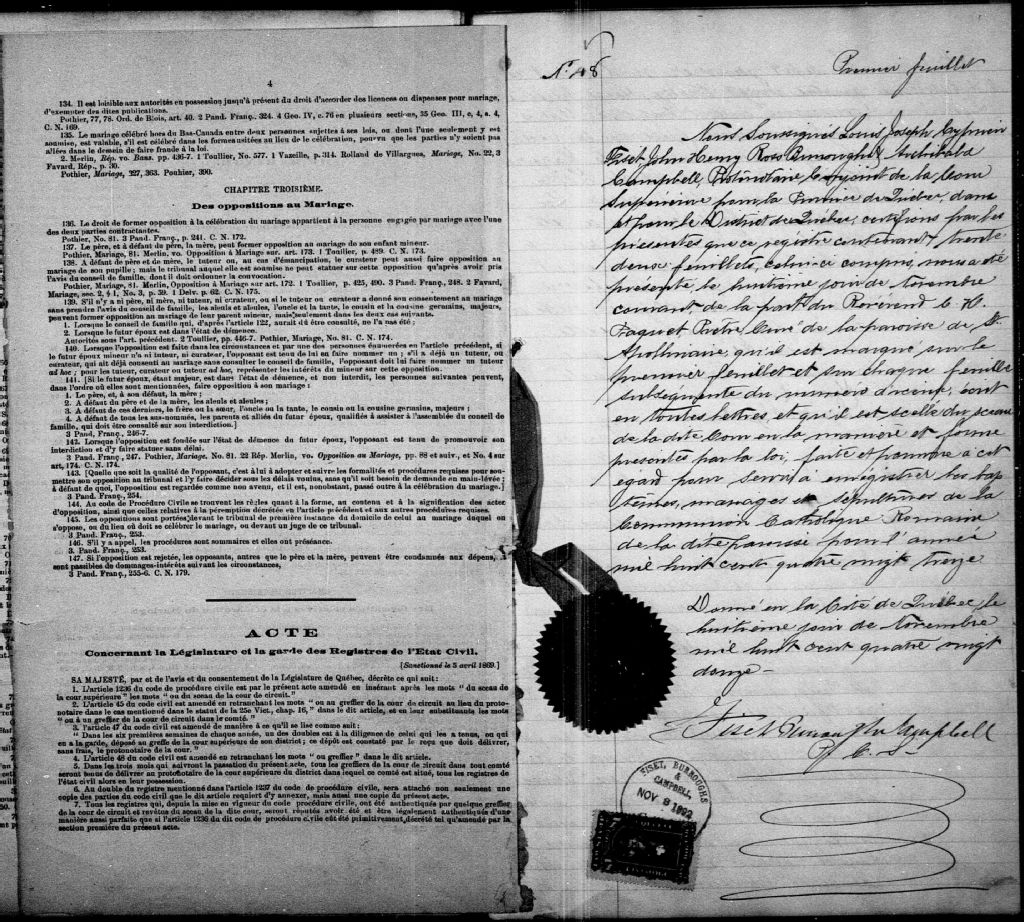 4
134. Il est loisible aux autorités en possession jusqu'à présent du droit d'accorder des licences ou dispenses pour mariage,
d'exempter des dites publications.
Pothier, 77, 78. Ord. de Blois, art. 40. 2 Pand. Franç., 324. 4 Geo. IV, c. 76 en plusieurs sections, 35 Geo. III, c, 4, s. 4,
C. N. 169.
135. Le mariage célébré hors du Bas-Canada entre deux personnes sujettes à ses lois, ou dont l'une seulement y est
soumise, est valable, s'il est célébré dans les formes usitées au lieu de la célébration, pourvu que les parties n'y soient pas
allées dans le dessein de faire fraude à la loi.
2. Merlin, Rép. vo. Bans. pp. 436-7. 1 Toullier, No. 577. 1 Vazeille, p. 314. Rolland de Villargues, Mariage, No. 22, 3
Favard, Rép., p. 30.
Pothier, Mariage, 327, 363. Pouhier, 390.
CHAPITRE TROISIÈME.
Des oppositions au Mariage.
136. Le droit de former opposition à la célébration du mariage appartient à la personne engagée par mariage avec l'une
des deux parties contractantes.
Pothier, No. 81. 3 Pand. Franç., p. 241. C. N. 172.
137. Le père, et à défaut de père, la mère, peut former opposition au mariage de son enfant mineur.
Pothier, Mariage, 81. Merlin, vo. Opposition à Mariage sur. art. 173. 1 Toullier, p. 489. C. N. 173.
138. A défaut de père et de mère, le tuteur ou, au cas d'émancipation, le curateur peut aussi faire opposition au
mariage de son pupille; mais le tribunal auquel elle est soumise ne peut statuer sur cette opposition qu'après avoir pris
l'avis du conseil de famille, dont il doit ordonner la convocation.
Pothier, Mariage, 81. Merlin, Opposition à Mariage sur art. 172. 1 Toullier, p. 425, 490. 3 Pand. Franç., 248. 2 Favard,
Mariage, sec. 2, § 1, No. 3, p. 59. 1 Delv. p. 62. C. N. 175.
139. S'il n'y a ni père, ni mère, ni tuteur, ni curateur, ou si le tuteur ou curateur a donné son consentement au mariage
sans prendre l'avis du conseil de famille, les aïeuls et aïeules, l'oncle et la tante, le cousin et la cousine germains, majeurs,
peuvent former opposition au mariage de leur parent mineur, mais seulement dans les deux cas suivants.
1. Lorsque le conseil de famille qui, d'après l'article 122, aurait dû être consulté, ne l'a pas été;
2. Lorsque le futur époux est dans l'état de démence.
Autorités sous l'art. précédent. 2 Toullier, pp. 446-7. Pothier, Mariage, No. 81. C. N. 174.
140. Lorsque l'opposition est faite dans les circonstances et par une des personnes énumérées en l'article précédent, si
le futur époux mineur n'a ni tuteur, ni curateur, l'opposant est tenu de lui en faire nommer un; s'il a déjà un tuteur, ou
curateur, qui ait déjà consenti au mariage sans consulter le conseil de famille, l'opposant doit lui faire nommer un tuteur
ad hoc; pour les tuteur, curateur ou tuteur ad hoc, représenter les intérêts du mineur sur cette opposition.
141. [Si le futur époux, étant majeur, est dans l'état de démence, et non interdit, les personnes suivantes peuvent,
dans l'ordre où elles sont mentionnées, faire opposition à son mariage:
1. Le père, et, à son défaut, la mère;
2. A défaut du père et de la mère, les aïeuls et aïeules;
3. A défaut de ces derniers, le frère ou la sœur, l'oncle ou la tante, le cousin ou la cousine germains, majeurs;
4. A défaut de tous les sus-nommés, les parents et alliés du futur époux, qualifiés à assister à l'assemblée du conseil de
famille, qui doit être consulté sur son interdiction.]
3 Pand, Franç., 246-7.
142. Lorsque l'opposition est fondée sur l'état de démence du futur époux, l'opposant est tenu de promouvoir son
interdiction et d'y faire statuer sans délai.
3 Pand. Franç., 247. Pothier, Mariage, No. 81. 22 Rép. Merlin, vo. Opposition au Mariage, pp. 88 et suiv., et No. 4 sur
art, 174. C. N. 174.
143. [Quelle que soit la qualité de l'opposant, c'est à lui à adopter et suivre les formalités et procédures requises pour sou-
mettre son opposition au tribunal et l'y faire décider sous les délais voulus, sans qu'il soit besoin de demande en main-levée;
à défaut de quoi, l'opposition est regardée comme non avenue, et il est, nonobstant, passé outre à la célébration du mariage.]
3 Pand. Franç., 254.
144. Au code de Procédure Civile se trouvent les règles quant à la forme, au contenu et à la signification des actes
d'opposition, ainsi que celles relatives à la péremption décrétée en l'article précédent et aux autres procédures requises.
145. Les oppositions sont portées devant le tribunal de première instance du domicile de celui au mariage duquel on
s'oppose, ou du lieu où doit se célébrer le mariage, ou devant un juge de ce tribunal.
3 Pand. Franç., 253.
146. S'il y a appel, les procédures sont sommaires et elles ont préséance.
3. Pand. Franç., 253.
147. Si l'opposition est rejetée, les opposants, autres que le père et la mère, peuvent être condamnés aux dépens, et
sont passibles de dommages-intérêts suivant les circonstances,
3 Pand. Franç., 255-6. C. N. 179.
ACTE
Concernant la Législature et la garde des Registres de l'Etat Civil.
[Sanctionné le 5 avril 1869.]
SA MAJESTÉ, par et de l'avis et du consentement de la Législature de Québec, décrète ce qui suit:
1. L'article 1236 du code de procédure civile est par le présent acte amendé en insérant après les mots "du sceau de
la cour supérieure" les mots "ou du sceau de la cour de circuit."
2. L'article 45 du code civil est amendé en retranchant les mots "ou au greffier de la cour de circuit au lieu du proto-
notaire dans le cas mentionné dans le statut de la 25e Vict., chap. 16," dans le dit article, et en leur substituant les mots
"ou à un greffier de la cour de circuit dans le comté."
3. l'article 47 du code civil est amendé de manière à ce qu'il se lise comme suit:
"Dans les six premières semaines de chaque année, un des doubles est à la diligence de celui qui les a tenus, ou qui
en a la garde, déposé au greffe de la cour supérieure de son district; ce dépôt est constaté par le reçu que doit délivrer,
sans frais, le protonotaire de la cour."
4. L'article 48 du code civil est amendé en retranchant les mots "ou greffier" dans le dit article.
5. Dans les trois mois qui suivront la passation du présent acte, tous les greffiers de la cour de circuit dans tout comté
seront tenus de délivrer au protonotaire de la cour supérieure du district dans lequel ce comté est situé, tous les registres de
l'état civil alors en leur possession.
6. Au double du registre mentionné dans l'article 1237 du code de procédure civile, sera attaché non seulement une
copie des parties du code civil que le dit article requiert d'y annexer, mais aussi une copie du présent acte.
7. Tous les registres qui, depuis la mise en vigueur du code de procédure civile, ont été authentiqués par quelque greffier
de la cour de circuit et revêtus du sceau de la dite cour, seront réputés avoir été et être légalement authentiqués d'une
manière aussi parfaite que si l'article 1236 du dit code de procédure civile eût été primitivement décrété tel qu'amendé par la
section première du présent acte.
No. 48
Premier feuillet
Nous Soussignés Louis Joseph Cyprien
Fiset, John Henry Ross Burroughs & Archibald
Campbell, Protonotaire Conjoint de la Cour
Supérieure pour la Province de Québec, dans
et pour le District de Québec, certifions par les
présentes que ce registre contenant trente
deux feuillets, celui-ci compris, nous a été
présenté le huitième jour de Novembre
courant de la part du Révérend C. H.
Paquet Prêtre Curé de la paroisse de St.
Apollinaire, qu'il est marqué sur le
premier feuillet et sur chaque feuillet
subséquent du numéro d'icelui, écrit
en toutes lettres et qu'il est scellé du sceau
de la dite Cour en la manière et forme
présentés par la loi, faite et pourvue à cet
égard pour servir à enregistrer les bap
têmes, mariages et sépultures de la
Communion Catholique Romaine
de la dite paroisse pour l'année
mil huit cent quatre vingt treize
Donné en la Cité de Québec, le
huitième jour de Novembre
mil huit cent quatre vingt
douze -
Fiset Burroughs Campbell
P. C. S.
FISET, BURROUGHS
&
CAMPBELL,
NOV 8 1892